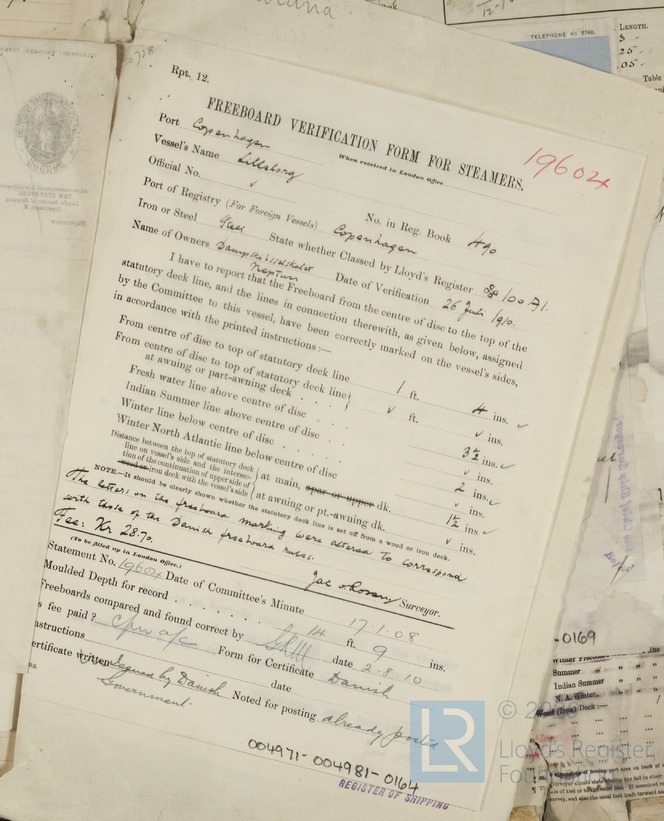 Rpt. 12.
FREEBOARD VERIFICATION FORM FOR STEAMERS.
When received in London Office
19604
Port Copenhagen
Vessel's Name Lillsborg
Official No. ✓
No. in Reg. Book 490
Port of Registry (For Foreign Vessels) Copenhagen
Iron or Steel Steel State whether Classed by Lloyd's Register 100 A1.
Name of Owners Neptun Date of Verification 26 Juli 1910.
I have to report that the Freeboard from the centre of disc to the top of the
statutory deck line, and the lines in connection therewith, as given below, assigned
by the Committee to this vessel, have been correctly marked on the vessel's sides,
in accordance with the printed instructions:—
From centre of disc to top of statutory deck line 1 ft. 4 ins. ✓
From centre of disc to top of statutory deck line
at awning or part-awning deck ✓ ft. ✓ ins.
Fresh water line above centre of disc 3½ ins. ✓
Indian Summer line above centre of disc ✓ ins.
Winter line below centre of disc 2 ins. ✓
Winter North Atlantic line below centre of disc ✓ ins.
Distance between the top of statutory deck
line on vessel's side and the intersec-
tion of the continuation of upper side of
wood or iron deck with the vessel's side
at main, spar or upper dk. 1½ ins. ✓
at awning or pt.-awning dk. ✓ ins.
NOTE.—It should be clearly shewn whether the statutory deck line is set off from a wood or iron deck.
The letters on the freeboard marking were altered to correspond
with those of the Danish freeboard rules.
Fee: Kr. 28.70.
Surveyor.
(To be filled up in London Office.)
Statement No. 19604 Date of Committee's Minute 17.1.08
Moulded Depth for record 14 ft. 9 ins.
Freeboards compared and found correct by date 2-8-10
s fee paid? Form for Certificate Danish
nstructions date
ertificate written Signed by Danish Government. Noted for posting already posted
004971-004981-0164
REGISTER OF SHIPPING
TELEPHONE No 5760.
LENGTH.
Table
-0169
Summer
Indian Summer
N. A. Winter
Wood (Iron) Deck:—
LR
Lloyd's Register
Foundation